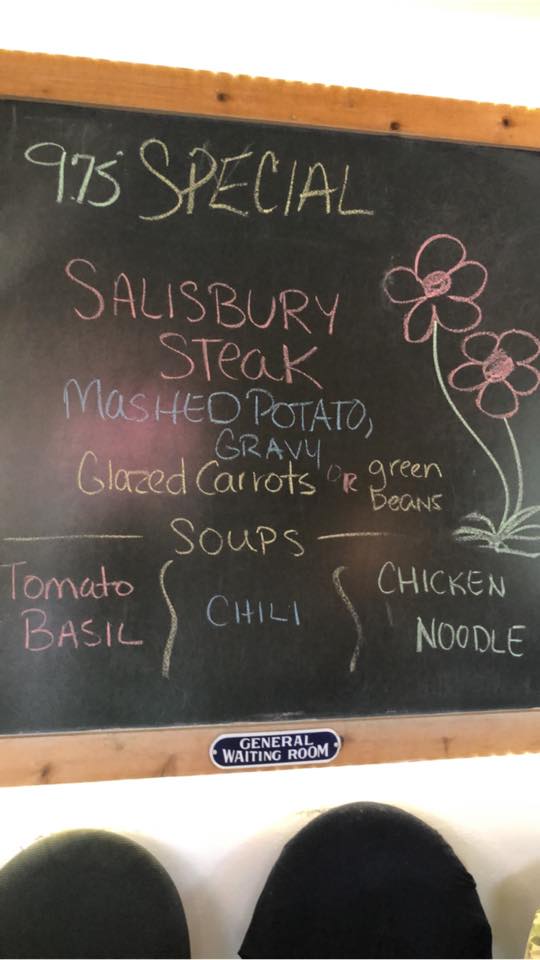 9.75 SPECIAL
SALISBURY
STEAK
MASHED POTATO,
GRAVY
Glazed Carrots OR green
beans
SOUPS
Tomato CHICKEN
BASIL CHILI NOODLE
GENERAL
WAITING ROOM